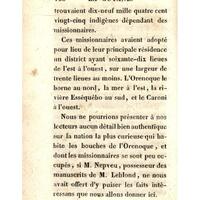 trouvaient dix-neuf mille quatre cent
vingt-cinq indigènes dépendant des
missionnaires.
Ces missionnaires avaient adopté
pour lieu de leur principale résidence
un district ayant soixante-dix lieues
de l'est à l'ouest, sur une largeur de
trente lieues au moins. L'Orenoque le
borne au nord, la mer à l'est, la ri-
vière Esséquébo au sud, et le Caroni
à l'ouest.
Nous ne pourrions présenter à nos
lecteurs aucun détail bien authentique
sur la nation la plus curieuse qui ha-
bite les bouches de l'Orenoque, et
dont les missionnaires se sont peu oc-
cupés, si M. Nepveu, possesseur des
manuscrits de M. Leblond, ne nous
avait offert d'y puiser les faits inté-
ressans que nous allons donner ici.